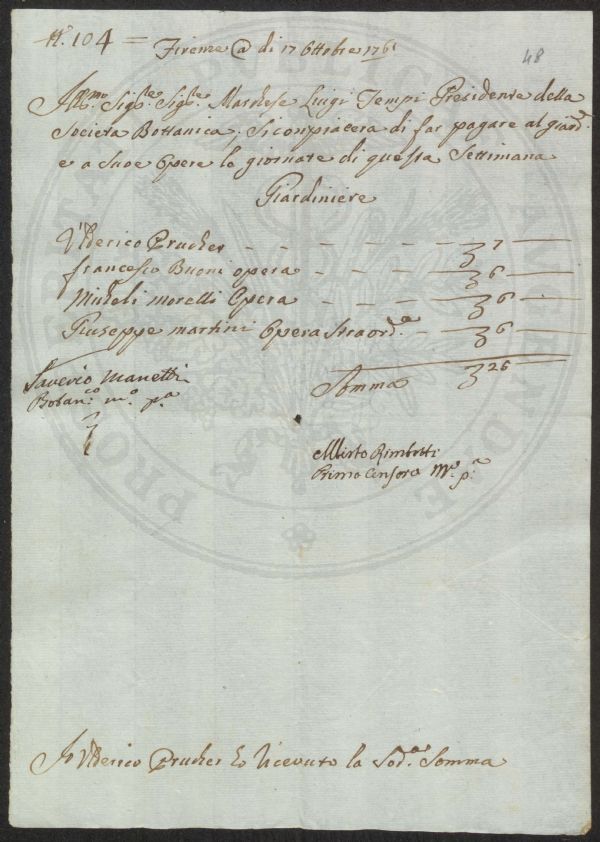 N.º 104 = Firenze @ di 17 Ottobre 1761
48
Ill.mo Sig.re Sig.re Marchese Luigi Tempi Presidente della
Societa Bottanica. Si conpiacera di far pagare al giard.
e a Suoe Opere le giornate di questa Settimana
Giardiniere
Ulderico Prucher - - - - - - - 7 —
francesco Buoni opera - - - - 6 —
Micheli morelli Opera - - - - 6 —
Giuseppe martini Opera Straord.a - 6 —
Somma 26 —
Saverio Manetti
Botan.co m.o p.a
Primo Censore M.o p.a
Io Ulderico Prucher ho Ricevuto la Sod.a Somma